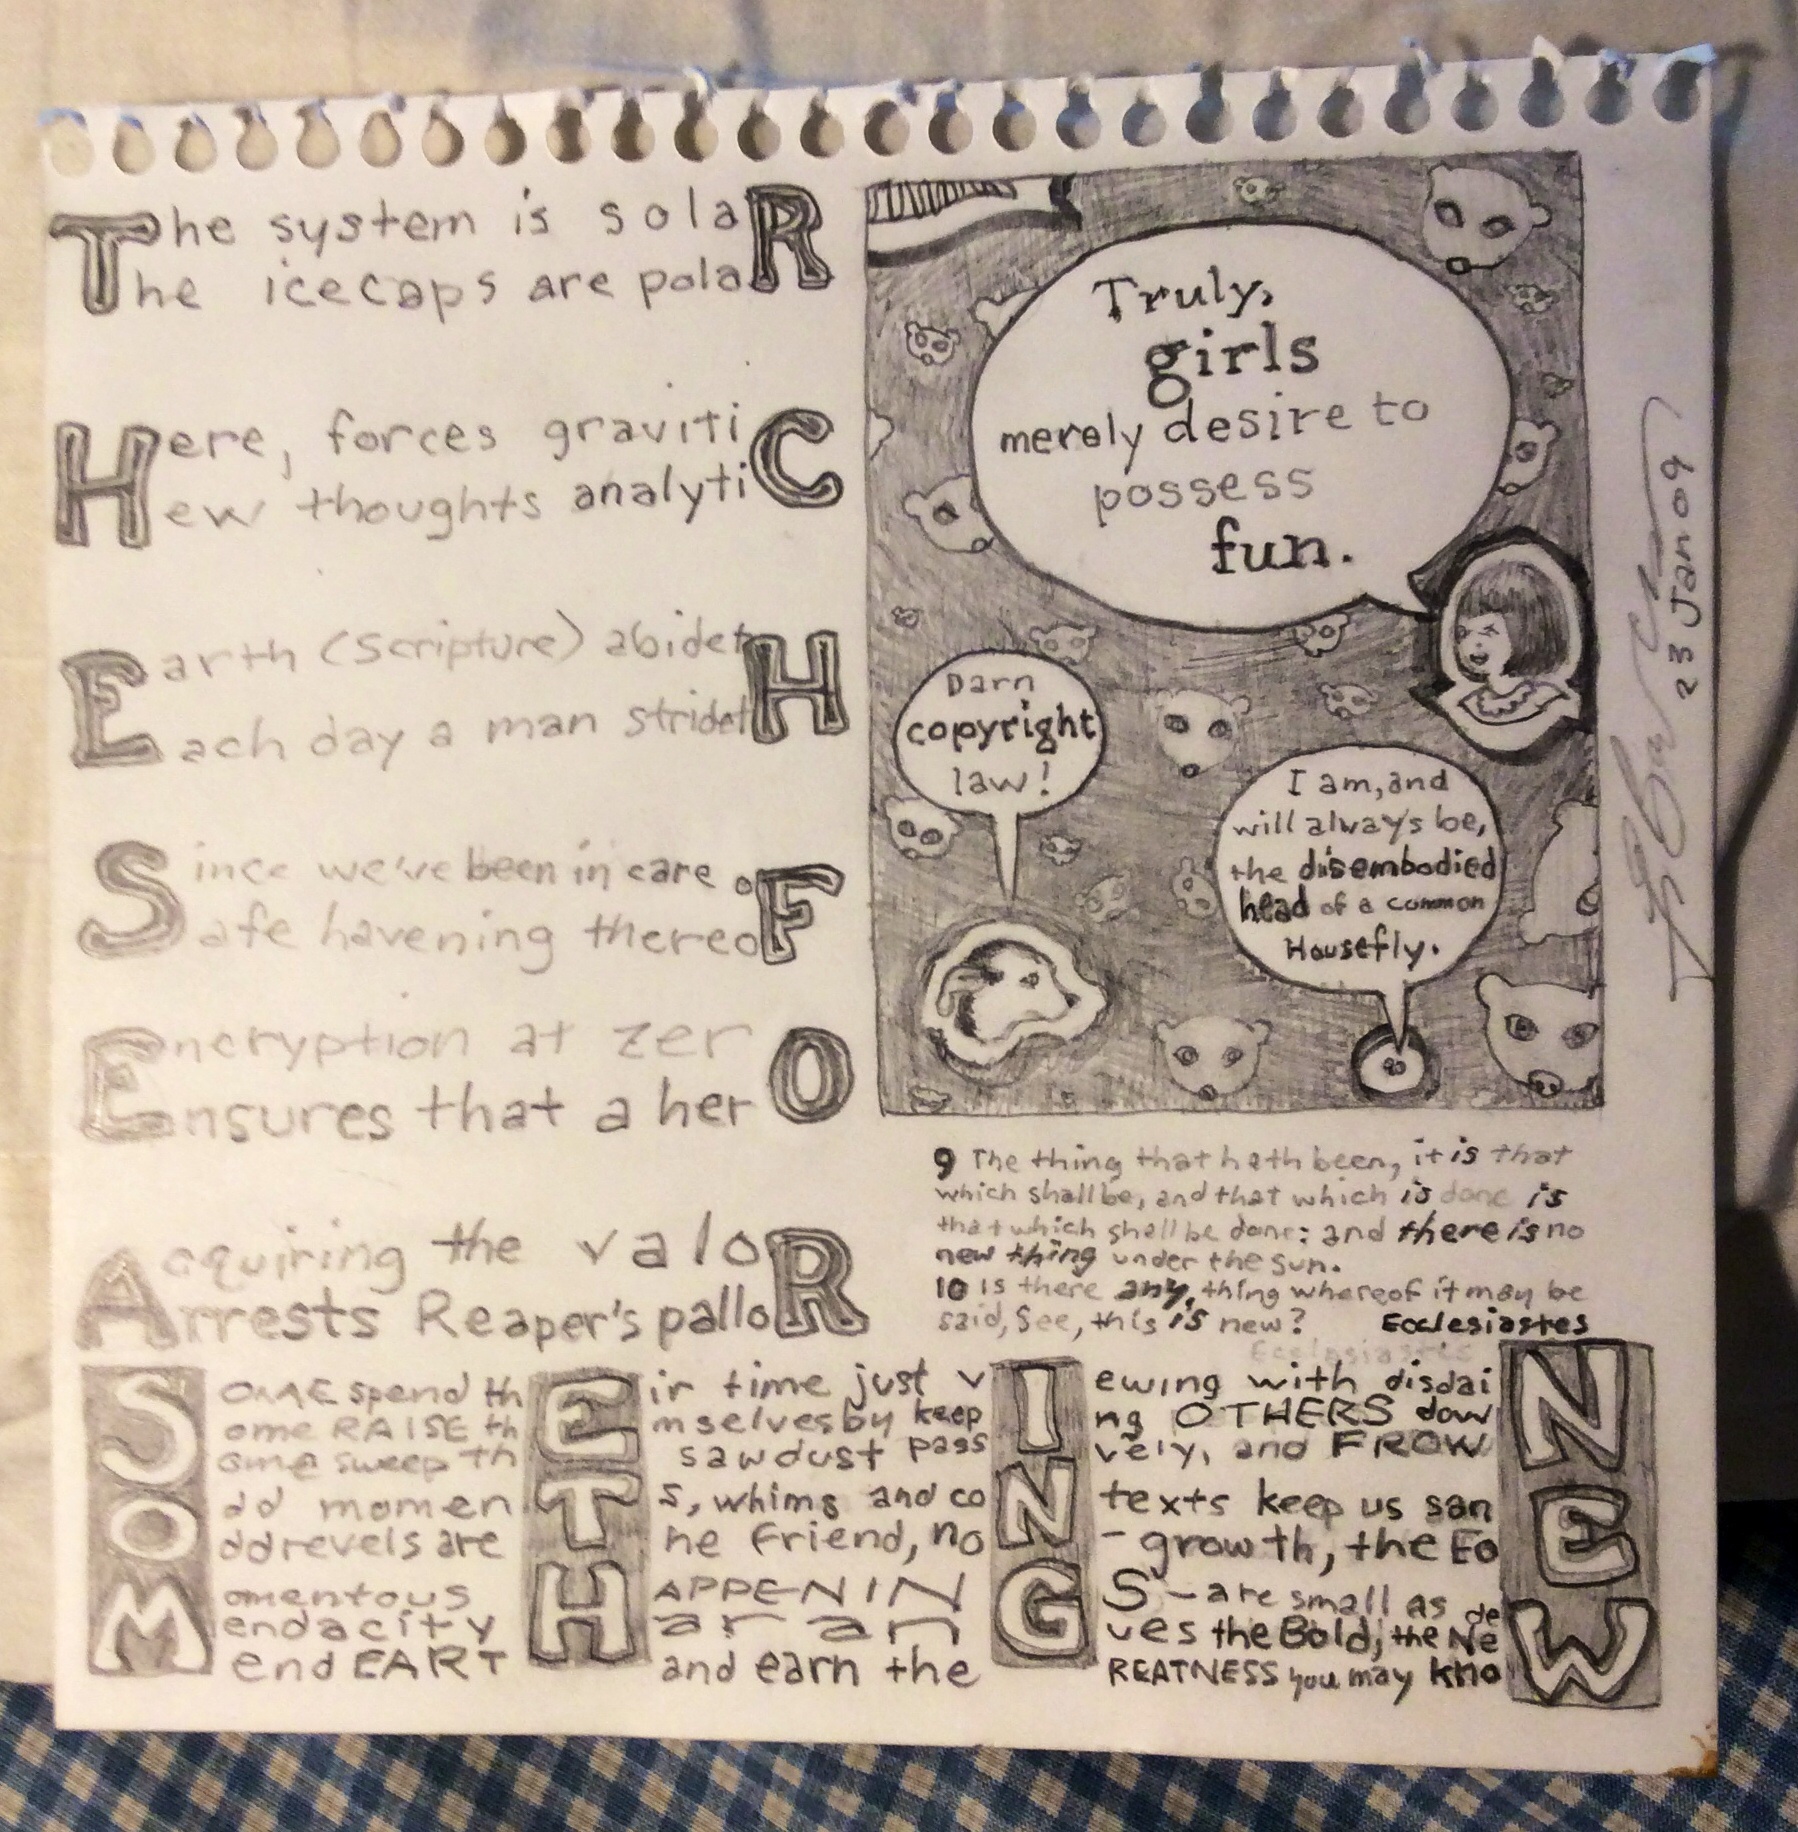 The system is solaR
The icecaps are polaR
Here, forces gravitiC
Hew thoughts analytiC
Earth (Scripture) abidetH
Each day a man stridetH
Since we've been in care oF
Safe havening thereoF
Encryption at zerO
Ensures that a herO
Acquiring the valoR
Arrests Reaper's palloR
Truly,
girls
merely desire to
possess
fun.
Darn
copyright
law!
I am, and
will always be,
the disembodied
head of a common
Housefly.
23 Jan 09
9 The thing that hath been, it is that
which shall be, and that which is done is
that which shall be done: and there is no
new thing under the sun.
10 Is there any thing whereof it may be
said, See, this is new? Ecclesiastes
Ecclesiastes
SOME spend thEir time just vIewing with disdaiN
Some RAISE thEmselves by keepIng OTHERS dowN
Some sweep thE sawdust passIvely, and FROWN
Odd momenTs, whims and coNtexts keep us sanE
Odd revels are The friend, noN-growth, the EoE
Momentous HAPPENINGS-are small as deW
Mendacity Har an Gues the Bold; the NeW
Mend EARTH and earn the GREATNESS you may knoW